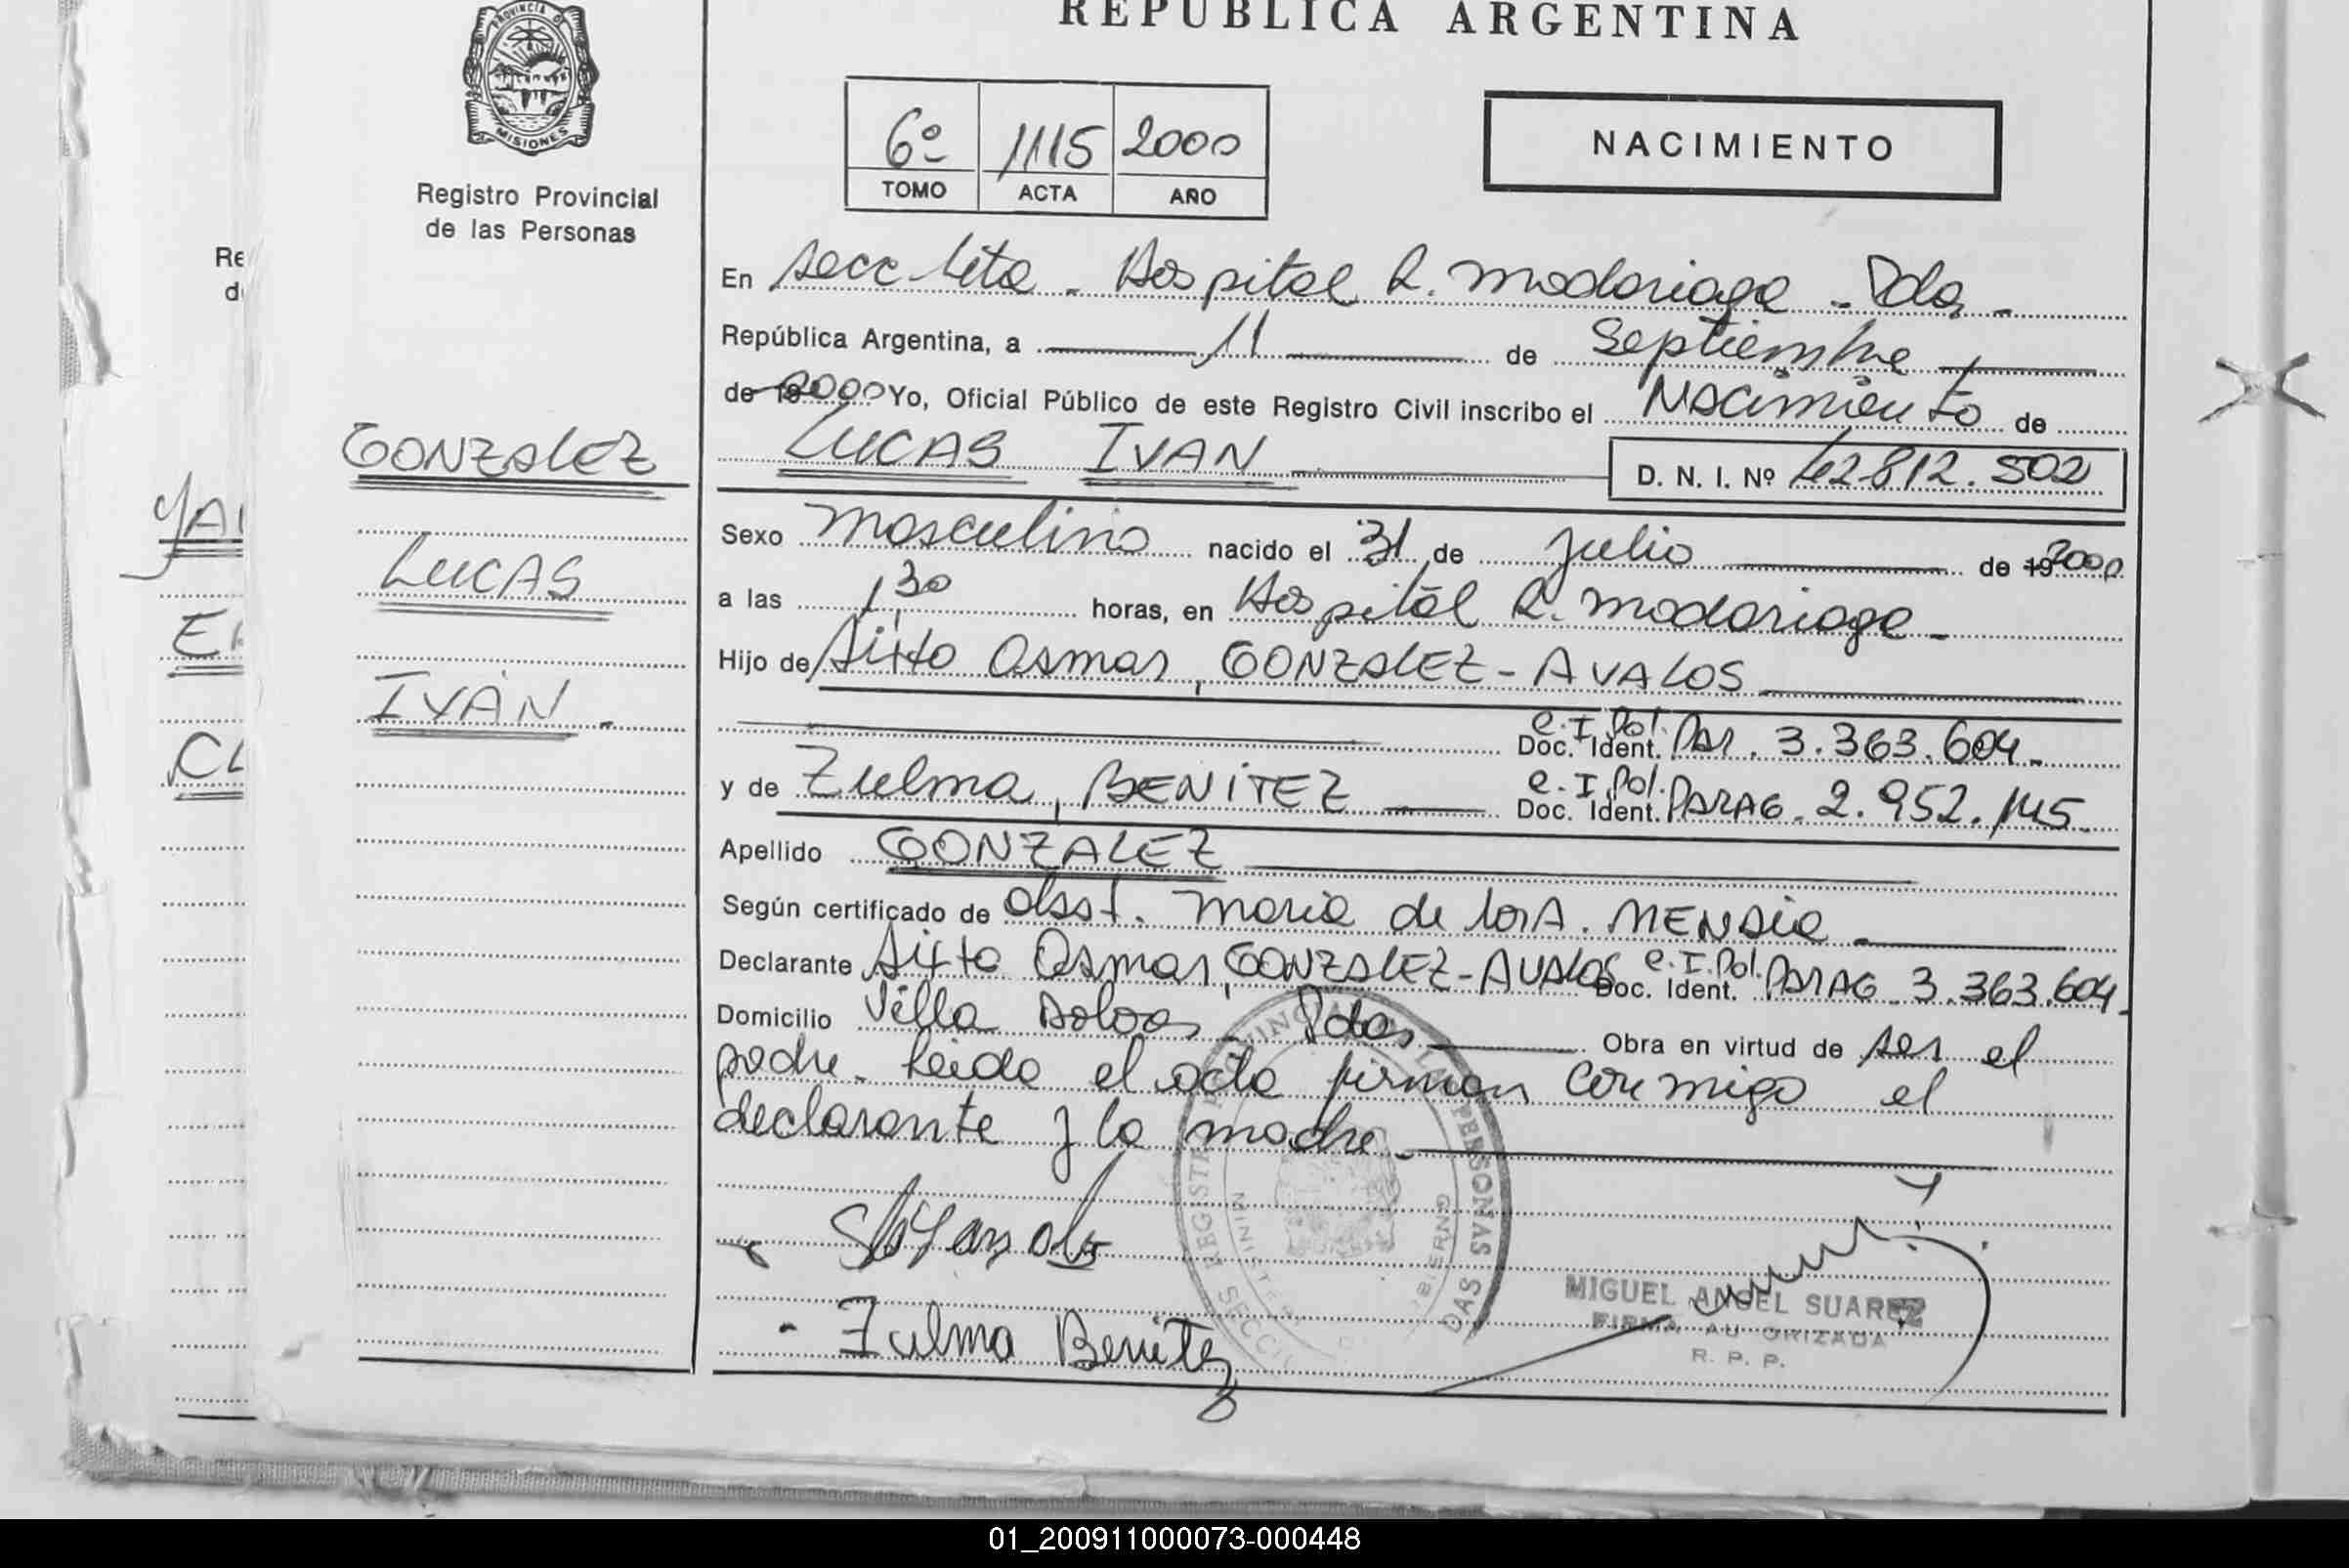 REPUBLICA ARGENTINA
PROVINCIA D
MISIONES
Registro Provincial
de las Personas
6º 1115 2000
TOMO ACTA AÑO
NACIMIENTO
En secc 4ta - Hospital R. Madariaga - Pdas -
República Argentina, a 11 de Septiembre
de 19 2000 Yo, Oficial Público de este Registro Civil inscribo el Nacimiento de
LUCAS IVAN D. N. I. Nº 42812.502
Sexo Masculino nacido el 31 de Julio de 19 2000
a las 1,30 horas, en Hospital R. Madariaga -
Hijo de Sixto Osmar, GONZALEZ - AVALOS
C. I. Pol.
Doc. Ident. PAR. 3.363.604 -
y de Zulma, BENITEZ C. I. Pol.
Doc. Ident. PARAG. 2.952.145 -
Apellido GONZALEZ
Según certificado de obst. Maria de los A. MENDIE -
Declarante Sixto Osmar, GONZALEZ - AVALOS C. I. Pol. Doc. Ident. PARAG 3.363.604 -
Domicilio Villa Pdas Obra en virtud de ser el
padre - Leida el acta firman conmigo el
declarante y la madre -
Zulma Benitez
MIGUEL ANGEL SUAREZ
FIRMA AU ORIZADA
R. P. P.
GONZALEZ
LUCAS
IVAN -
Re
d
YA
E
CL
01_200911000073-000448